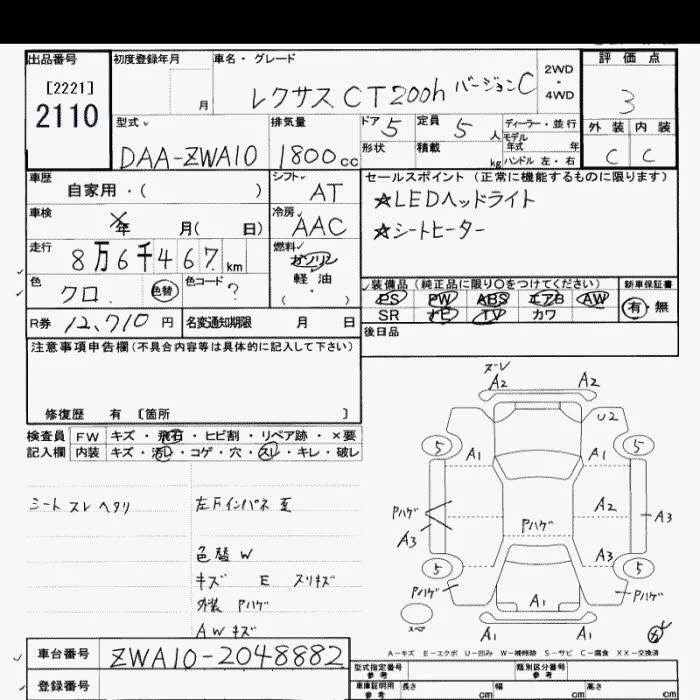 出品番号
[2221]
2110
初度登録年月
月
車名・グレード
レクサス CT200h バージョンC
2WD
・
4WD
評価点
3
外装 内装
C C
型式
DAA-ZWA10
排気量
1800cc
ドア 5
定員 5人
ディーラー・並行
モデル
年式 年
形状
積載 kg
ハンドル 左・右
車歴
自家用・( )
シフト
AT
車検
年 月( 日)
冷房
AAC
走行
8万6千467km
燃料
ガソリン
軽油
( )
色
クロ
色替
色コード
?
セールスポイント(正常に機能するものに限ります)
☆LEDヘッドライト
☆シートヒーター
装備品(純正品に限り○をつけてください)
PS PW ABS エアB AW
SR ナビ TV カワ
新車保証書
有・無
R券 12,710円
名変通知期限 月 日
後日品
注意事項申告欄(不具合内容等は具体的に記入して下さい)
修復歴 有 〔箇所 〕
検査員
記入欄
FW キズ・飛石・ヒビ割・リペア跡・×要
内装 キズ・汚レ・コゲ・穴・スレ・キレ・破レ
シート スレ ヘタリ
色替 W
キズ E スリキズ
外装 Pハゲ
AW キズ
ズレ
A2 A2
U2
5 5
A1 A1
Pハゲ A2 A3
Pハゲ
A3 A3
5 5
Pハゲ Pハゲ
A1 A1
スペア
A1 A1
A-キズ E-エクボ U-凹み W-補修跡 S-サビ C-腐食 XX-交換済
車台番号
ZWA10-2048882
登録番号
型式指定番号
参考
類別区分番号
参考
車庫証明用
参考
長さ cm 幅 cm 高さ cm